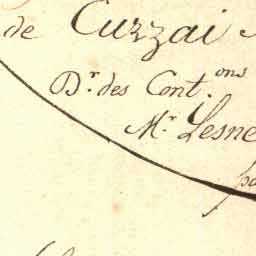 de Cuzzai
Dr. des Cont.ons
Mr. Lesne